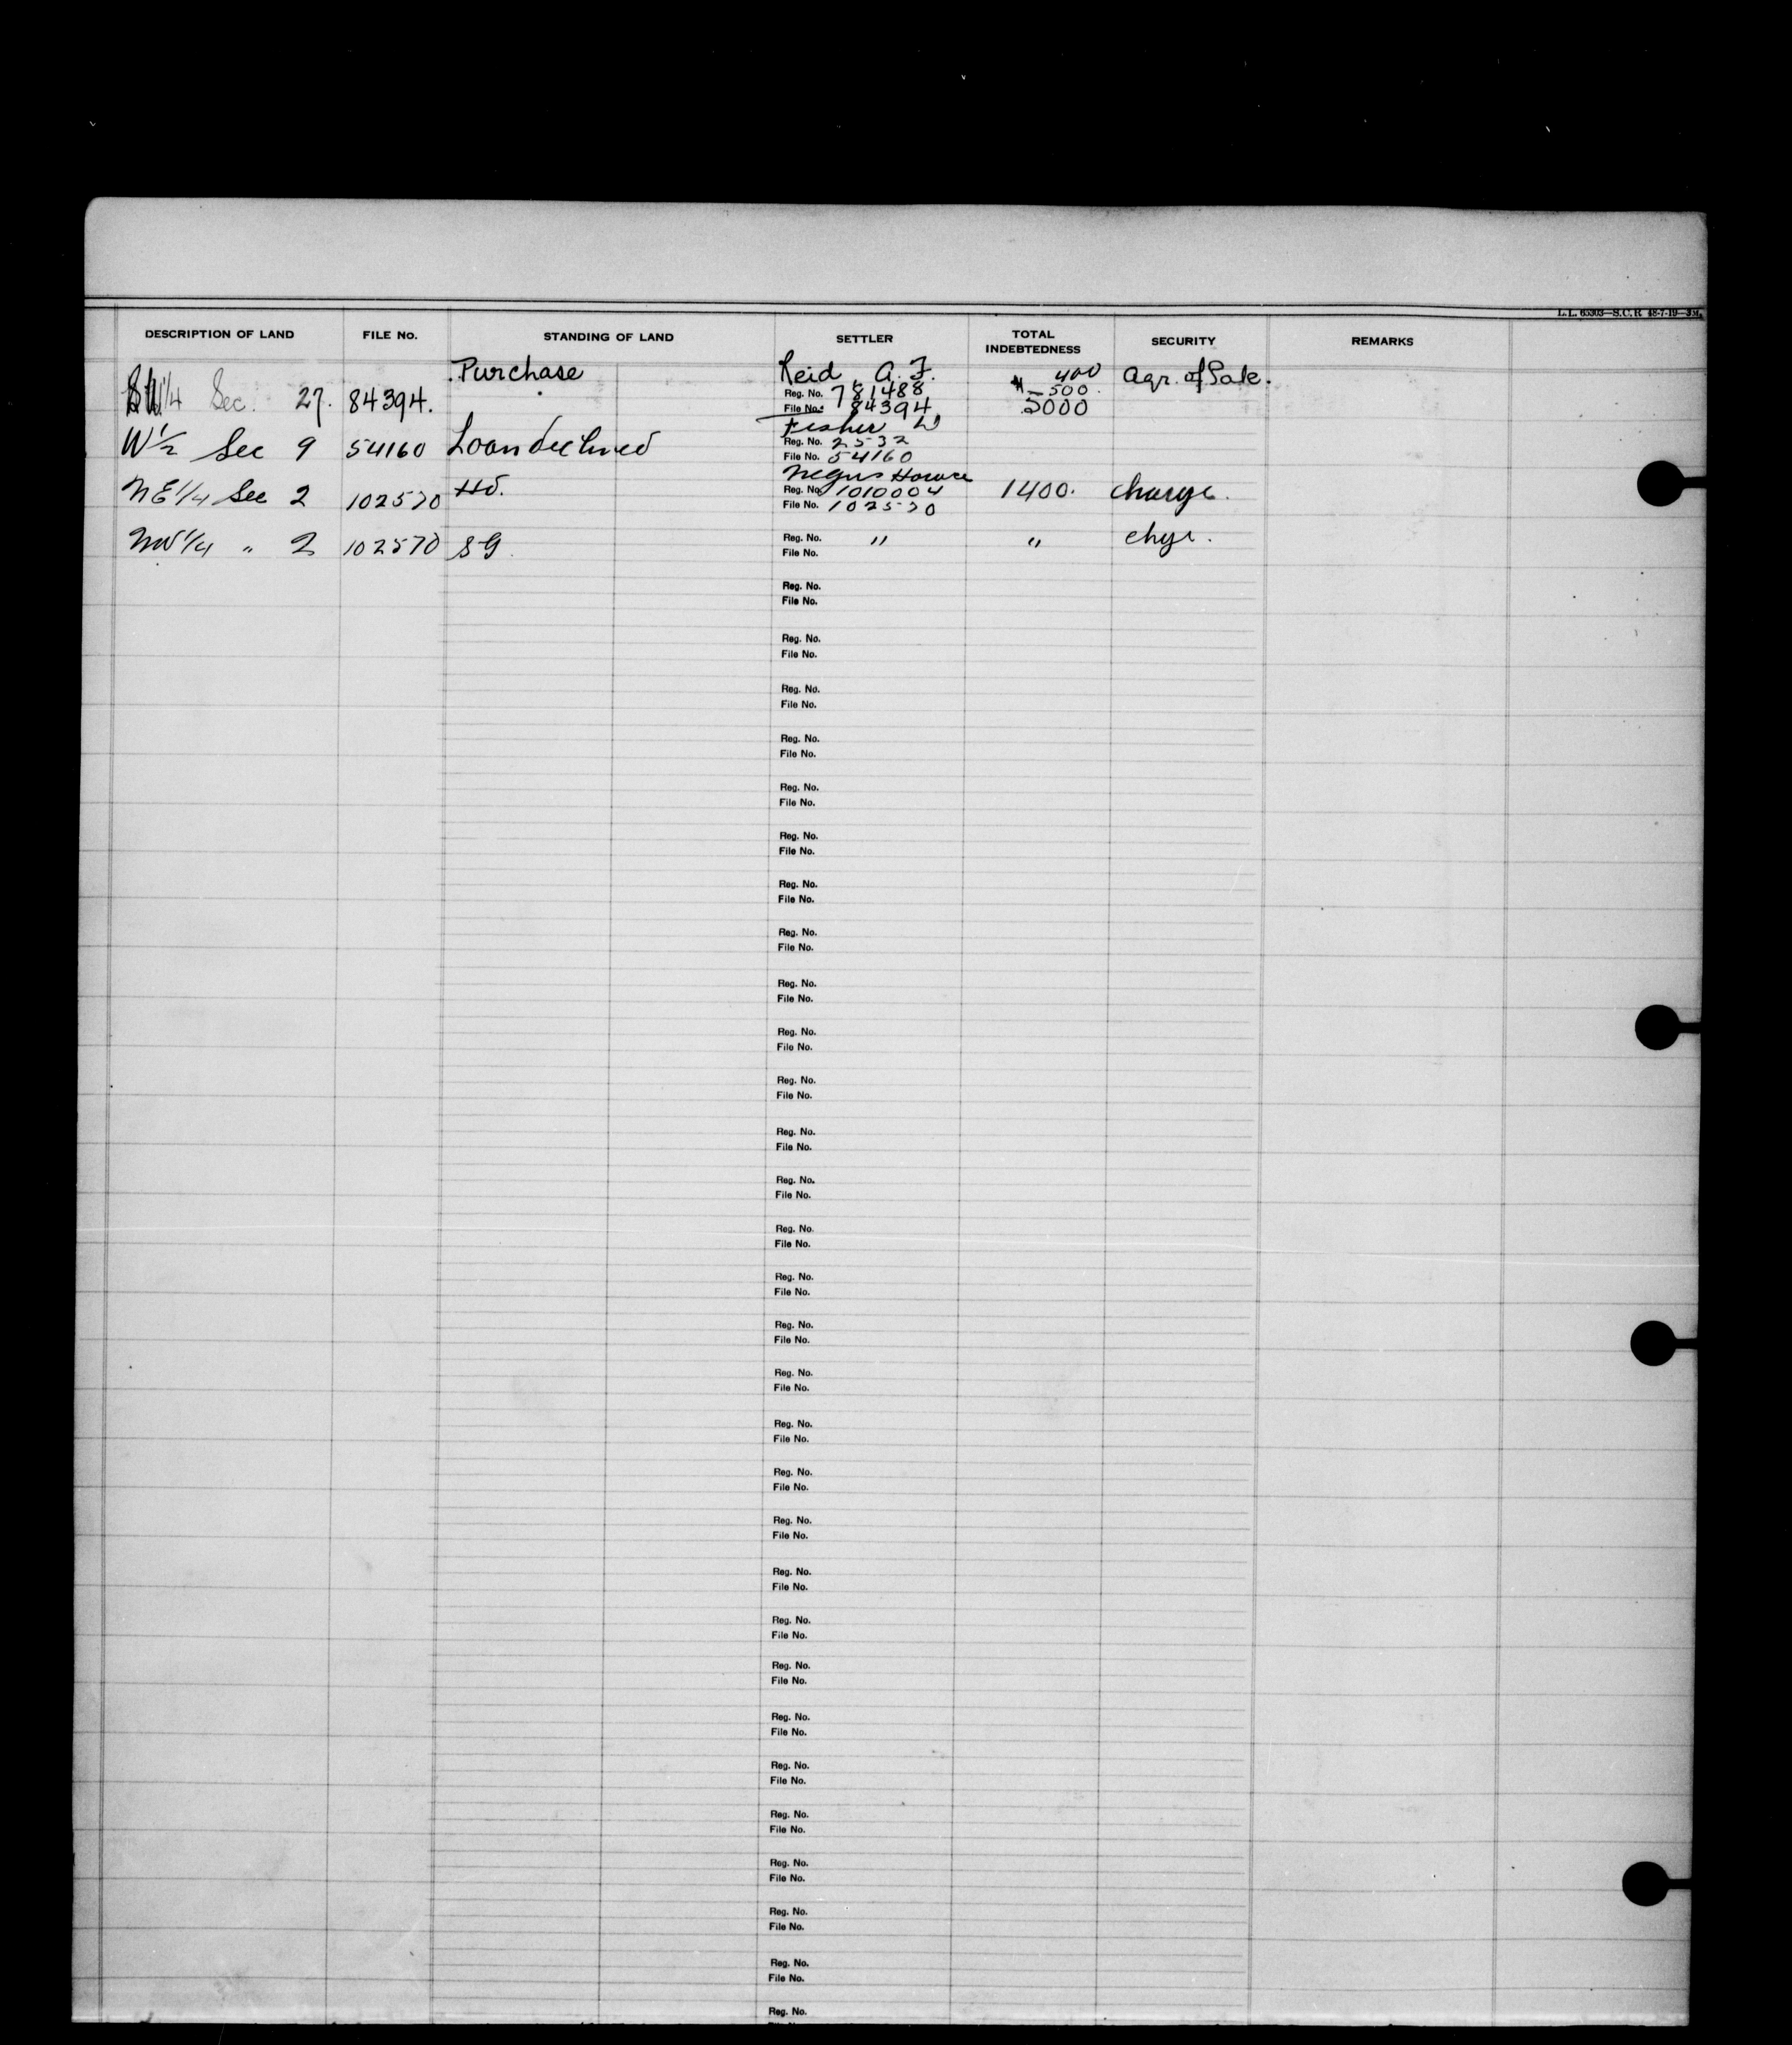 L.L. 65303—S.C.R. 48-7-19—3M.
DESCRIPTION OF LAND FILE No. STANDING OF LAND SETTLER TOTAL INDEBTEDNESS SECURITY REMARKS
Purchase Reid A. F. 400 Agr. of Sale.
1/4 Sec. 27. 84394. Reg. No. 781488 500.
File No. 84394 5000
Fisher W
W 1/2 Sec 9 54160 Loan declined Reg. No. 2532
File No. 54160
Negus Horace
NE 1/4 Sec 2 102570 Hd. Reg. No. 1010004 1400. charge.
File No. 102570
NW 1/4 " 2 102570 SG. Reg. No. " " chge.
File No.
Reg. No.
File No.
Reg. No.
File No.
Reg. No.
File No.
Reg. No.
File No.
Reg. No.
File No.
Reg. No.
File No.
Reg. No.
File No.
Reg. No.
File No.
Reg. No.
File No.
Reg. No.
File No.
Reg. No.
File No.
Reg. No.
File No.
Reg. No.
File No.
Reg. No.
File No.
Reg. No.
File No.
Reg. No.
File No.
Reg. No.
File No.
Reg. No.
File No.
Reg. No.
File No.
Reg. No.
File No.
Reg. No.
File No.
Reg. No.
File No.
Reg. No.
File No.
Reg. No.
File No.
Reg. No.
File No.
Reg. No.
File No.
Reg. No.
File No.
Reg. No.
File No.
Reg. No.
File No.
Reg. No.